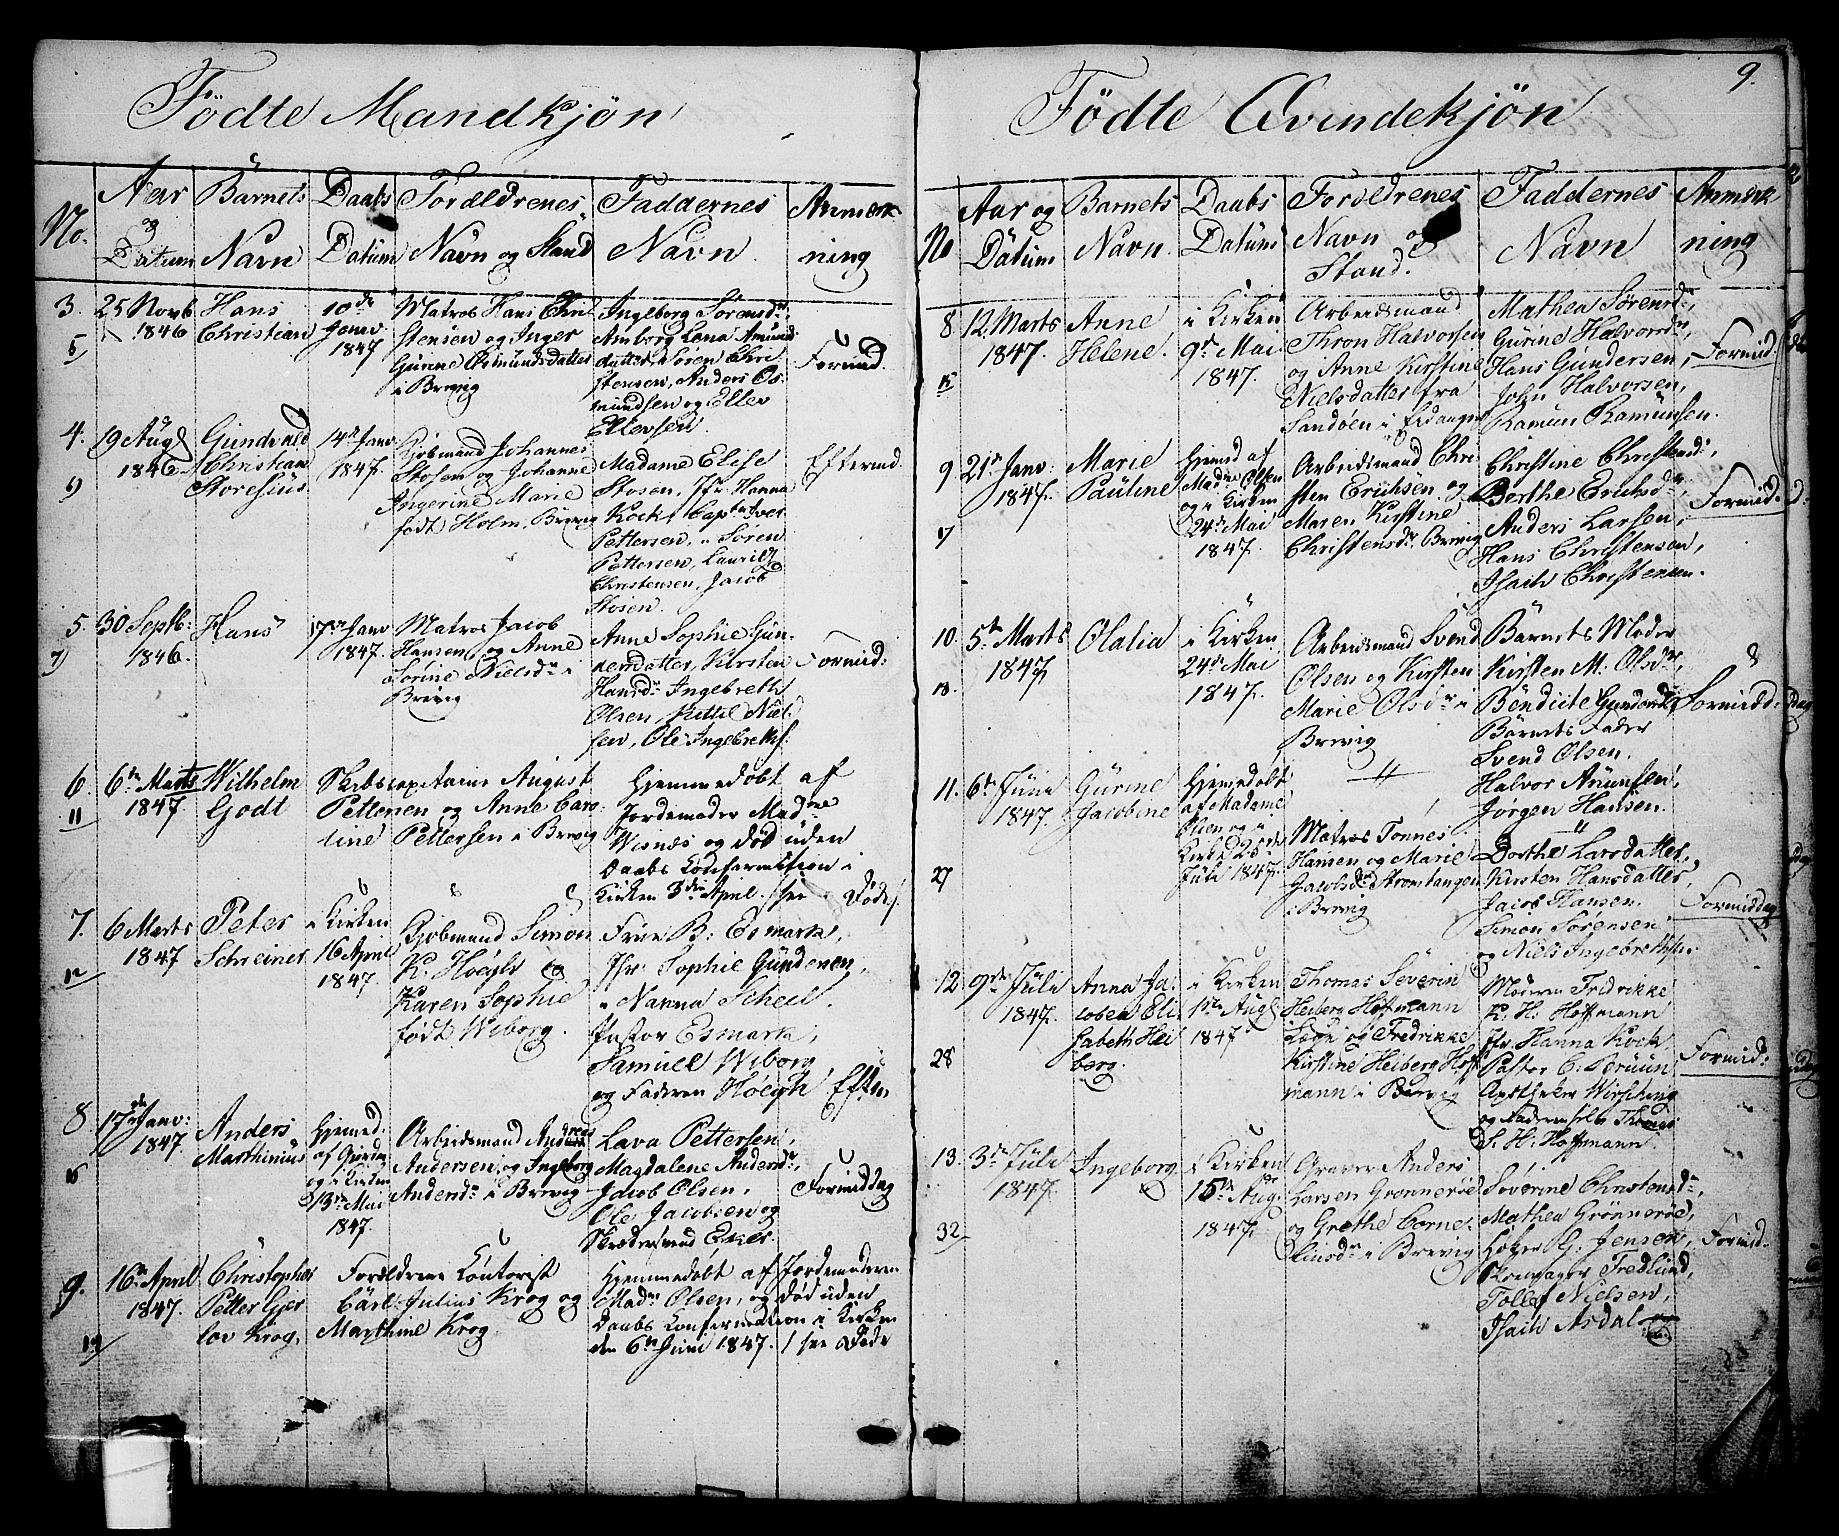 Födte Mandkjön
No.
Aar og Datum
Barnets Navn
Daabs Datum
Forældrenes Navn og Stand
Faddernes Navn
Anmærkning
3. 5
25 Novb
1846
Hans
Christian
10de
Janv.
1847
Matros Hans Chri
stensen og Inger
Gurine Asmundsdatter
i Brevig
Ingeborg Sörensdr
Amborg Lena Amund
datter, Sören Chri
stensen, Anders Os
mundsen og Ellev
Ellevsen.
Formid.
4. 6
19 Aug
1846
Gundvald
Christian
Storesius
14de Janv.
1847.
Kjöbmand Johannes
Stosen og Johanne
Ingerine Marie
födt Holm, Brevig
Madame Elise
Stosen, Jfr. Hanna
Kock, Captn Iver
Pettersen, Sören
Pettersen, Laurits
Christensen, Jacob
Stosen.
Eftermid.
5. 7
30 Septb:
1846.
Hans
17de Janv
1847.
Matros Jacob
Hansen og Anne
Sörine Nielsdr i
Brevig
Anne Sophie Gun-
dersdatter, Kirsten
Hansdr Ingebreth
Olsen, Kittil Niel-
sen, Ole Ingebrethsf:
Formid:
6. 11
6te Marts
1847
Wilhelm
Godt
Skibscapitaine August
Pettersen og Anne Caro-
line Pettersen i Brevig
Hjemmedöbt af
Jordemoder Madme
Wisnes og död uden
Daabs Confirmation i
Kirken 3die April. /see Döde/.
7. 12
6 Marts
1847
Peter
Schreiner
i Kirken
16 April
1847.
Kjöbmand Simon
K. Höegh og
Karen Sophie
födt Wiborg.
Frue B: Esmark,
Jfr: Sophie Gundersen,
" Nanna Scheel.
Pastor Esmark,
Samuel Wiborg
og Faderen Höegh
Efterm
8 16
17de Janv:
1847
Anders
Marthinius
Hjemd.
af
og i Kirken
13de Mai
1847.
Arbeidsmand Andreas
Andersen og Ingeborg
Andersdr i Brevig
Lava Pettersen,
Magdalene Andersdr,
Jacob Olsen,
Ole Jacobsen og
Skrædersvend Eker.
Formiddag
9. 19
16de April
1847.
Christopher
Petter Gjer
lov Krog,
Forældrene Contorist
Carl Julius Krog og
Marthine Krog
Hjemmedöbt af Jordemoderen
Madm Olsen, og död uden
Daabs Confirmation i Kirken
den 6te Juni 1847. / see Döde
9.
Födte Qvindekjön
No
Aar og Datum
Barnets Navn.
Daabs Datum
Forældrenes Navn og Stand.
Faddernes Navn
Anmærkning
8. 15
12 Marts
1847.
Anne
Helene.
i Kirken
9de Mai
1847.
Arbeidsmand
Thron Halvorsen
og Anne Kirstine
Nielsdatter fra
Sandöen i Eidanger
Mathea Sörensdr,
Gurine Halvorsdr,
Hans Gundersen,
John Halvorsen,
Ramun Ramunsen.
Formid:
9. 17
21de Janv:
1847.
Marie
Pauline
Hjemd af
Madm Olsen
og i Kirken
24de Mai
1847.
Arbeidsmand Chri
sten Erichsen og
Maren Kirstine
Christensdr Brevig
Christine Christensdr,
Berthe Ericksdr,
Anders Larsen,
Hans Christensen,
Isach Christensen.
Formid:
10. 18.
5te Marts
1847
Olalia
i Kirken
24de Mai
1847.
Arbeidsmand Svend
Olsen og Kirsten
Marie Olsdr i
Brevig
Barnets Moder
Kirsten M. Olsdr,
Bendicte Gundersdr
Barnets Fader
Svend Olsen.
Halvor Anunsen,
Jörgen Hansen.
Formidd:
11. 27
6te Juni
1847.
Gurine
Jacobine
Hjemedöbt
af Madame
Olsen og i
Kirke 25de
Juli 1847.
Matros Tönnes
Hansen og Marie
Jacobsdr Stromtangen
i Brevig
Dorthe Larsdatter,
Kirsten Hansdatter,
Jacob Hansen.
Simon Sörensen
og Niels Ingebrethsen.
Formiddag
12 28
9de Juli
1847.
Anna Ja-
cobea Eli
sabeth Hei
berg.
i Kirken
1ste Aug
1847
Thomas Severin
Heiberg Hoffmann
Læge og Fredrikke
Kirstine Heiberg Hoff
mann i Brevig
Moderen Fredrikke
K: H: Hoffmann
Jfr. Hanna Kock
Pastor C. Bruun
Apotheker Wirsching
og Faderen selv Thomas
S. H: Hoffmann
Formid:
13. 32
3de Juli
1847.
Ingeborg
i Kirken
15de Aug:
1847.
Graver Anders
Larsen Grönneröe
og Grethe Corne-
liusdr i Brevig
Söverine Christensdr
Mathea Grönneröe,
Holger G. Jensen,
Skomager Fredlund,
Tollef Nielsen,
Isach Asdal
Formid.